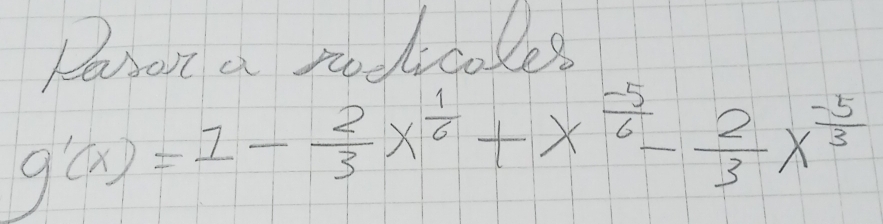 Pasar a radicales
g'(x) = 1 - \frac{2}{3} x^{\frac{1}{6}} + x^{\frac{-5}{6}} - \frac{2}{3} x^{\frac{-5}{3}}